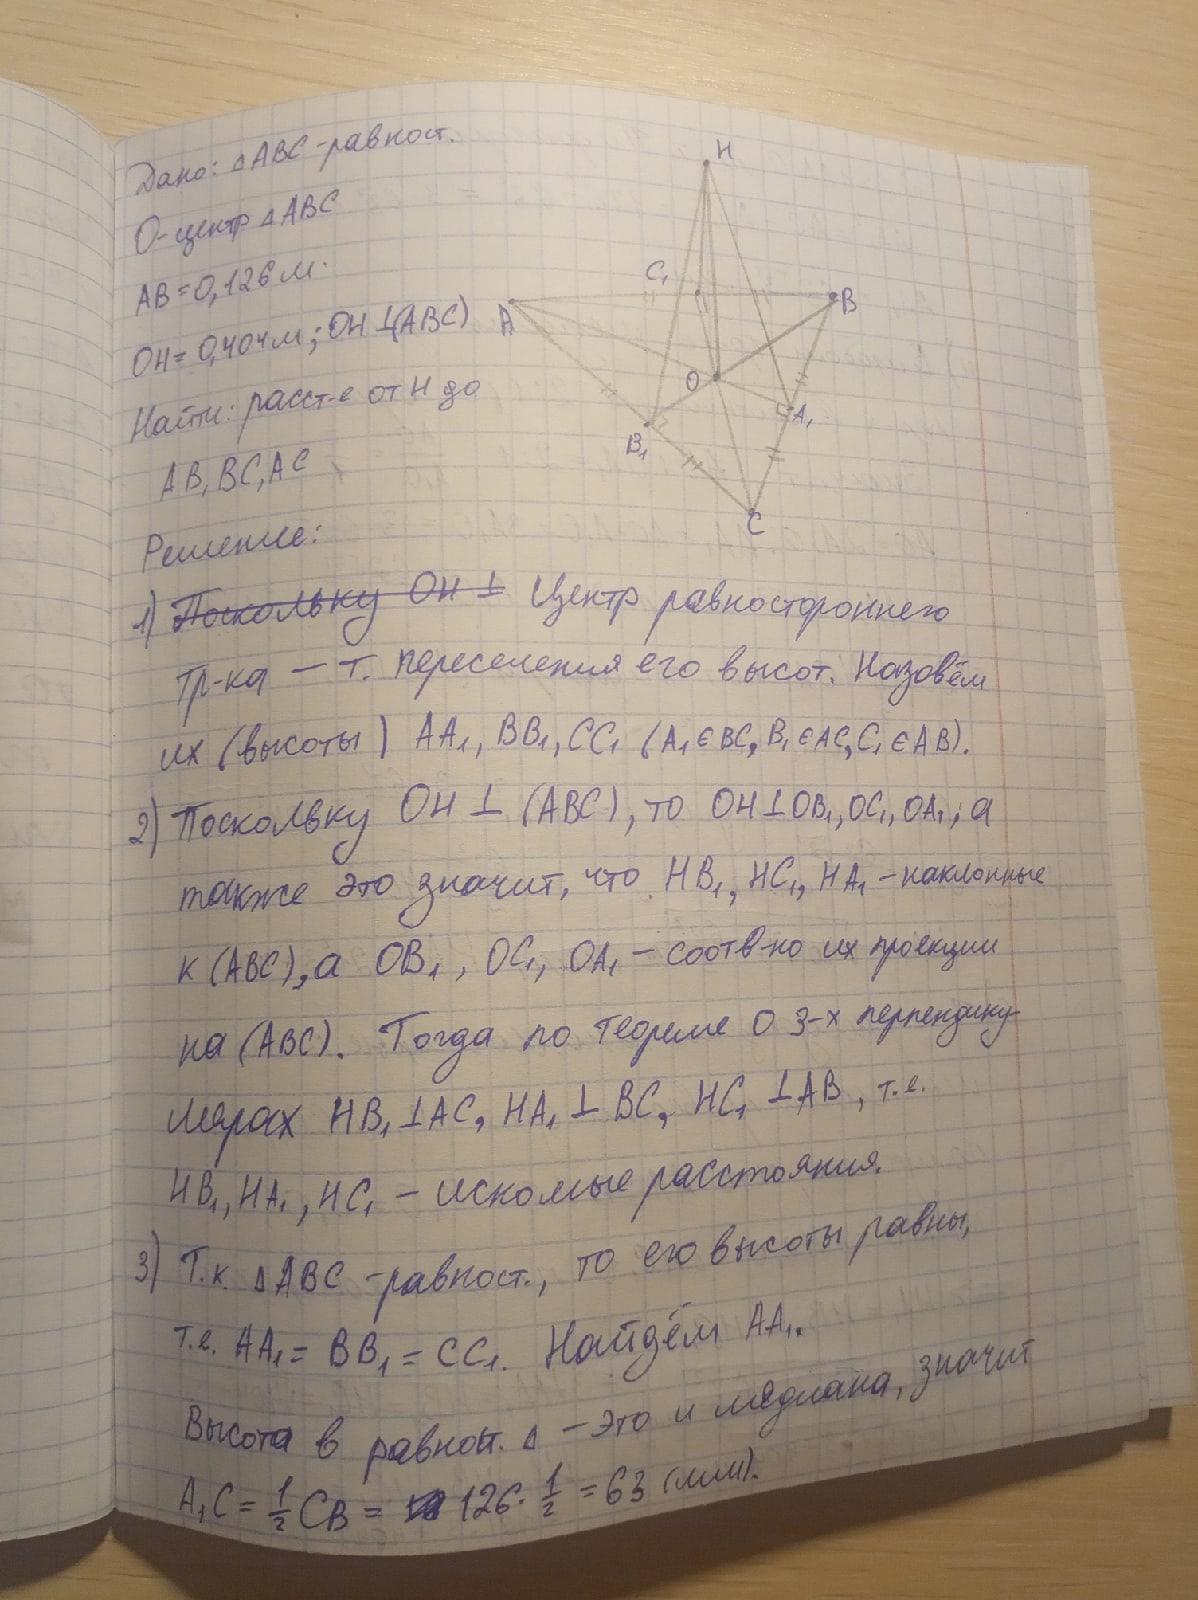 Дано: △ABC-равност.
O-центр △ABC
AB=0,126м.
OH=0,404м; OH⊥(ABC)
Найти: расст-е от H до
AB, BC, AC
H
C₁
A
B
O
A₁
B₁
C
Решение:
1) Поскольку OH ⊥ Центр равностороннего
тр-ка — т. пересечения его высот. Назовём
их (высоты) AA₁, BB₁, CC₁ (A₁∈BC, B₁∈AC, C₁∈AB).
2) Поскольку OH ⊥ (ABC), то OH⊥OB₁, OC₁, OA₁, а
также это значит, что HB₁, HC₁, HA₁ -наклонные
к (ABC), а OB₁, OC₁, OA₁ - соотв-но их проекции
на (ABC). Тогда по теореме о 3-х перпендику-
лярах HB₁⊥AC, HA₁⊥BC, HC₁⊥AB, т.е.
HB₁, HA₁, HC₁ - искомые расстояния.
3) Т.к. △ABC -равност., то его высоты равны,
т.е. AA₁=BB₁=CC₁. Найдём AA₁.
Высота в равност. △ -это и медиана, значит
A₁C = 1/2 CB = 126 · 1/2 = 63 (мм).